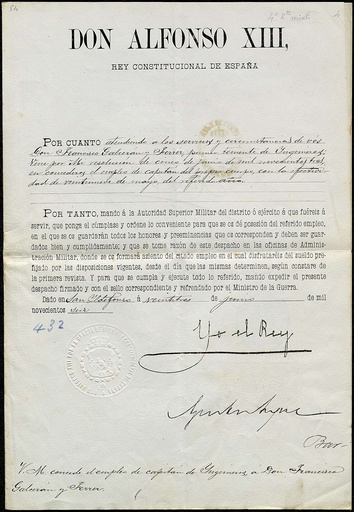 DON ALFONSO XIII,
REY CONSTITUCIONAL DE ESPAÑA
POR CUANTO atendiendo a los servicios y circunstancias de vos
Don Francisco Galcerán y Ferrer, primer teniente de Ingenieros,
Vine por Mi resolución de cinco de junio de mil novecientos
en concederos el empleo de capitán del propio cuerpo, con la efectivi-
dad de veintinueve de mayo del referido año.
POR TANTO, mando á la Autoridad Superior Militar del distrito ó ejército á que fuéreis á
servir, que ponga el cúmplase y ordene lo conveniente para que se os dé posesión del referido empleo,
en el que se os guardarán todos los honores y preeminencias que os corresponden y deben ser guar-
dados bien y cumplidamente; y que se tome razón de este despacho en las oficinas de Adminis-
tración Militar, donde se os formará asiento del citado empleo en el cual disfrutaréis del sueldo pre-
fijado por las disposiciones vigentes, desde el día que las mismas determinen, según constare de
la primera revista. Y para que se cumpla y ejecute todo lo referido, mando expedir el presente
despacho firmado y con el sello correspondiente y refrendado por el Ministro de la Guerra.
Dado en San Ildefonso á veintitrés de junio de mil
novecientos
432
Yo el Rey
V. M. concede el empleo de capitán de Ingenieros a Don Francisco
Galcerán y Ferrer.